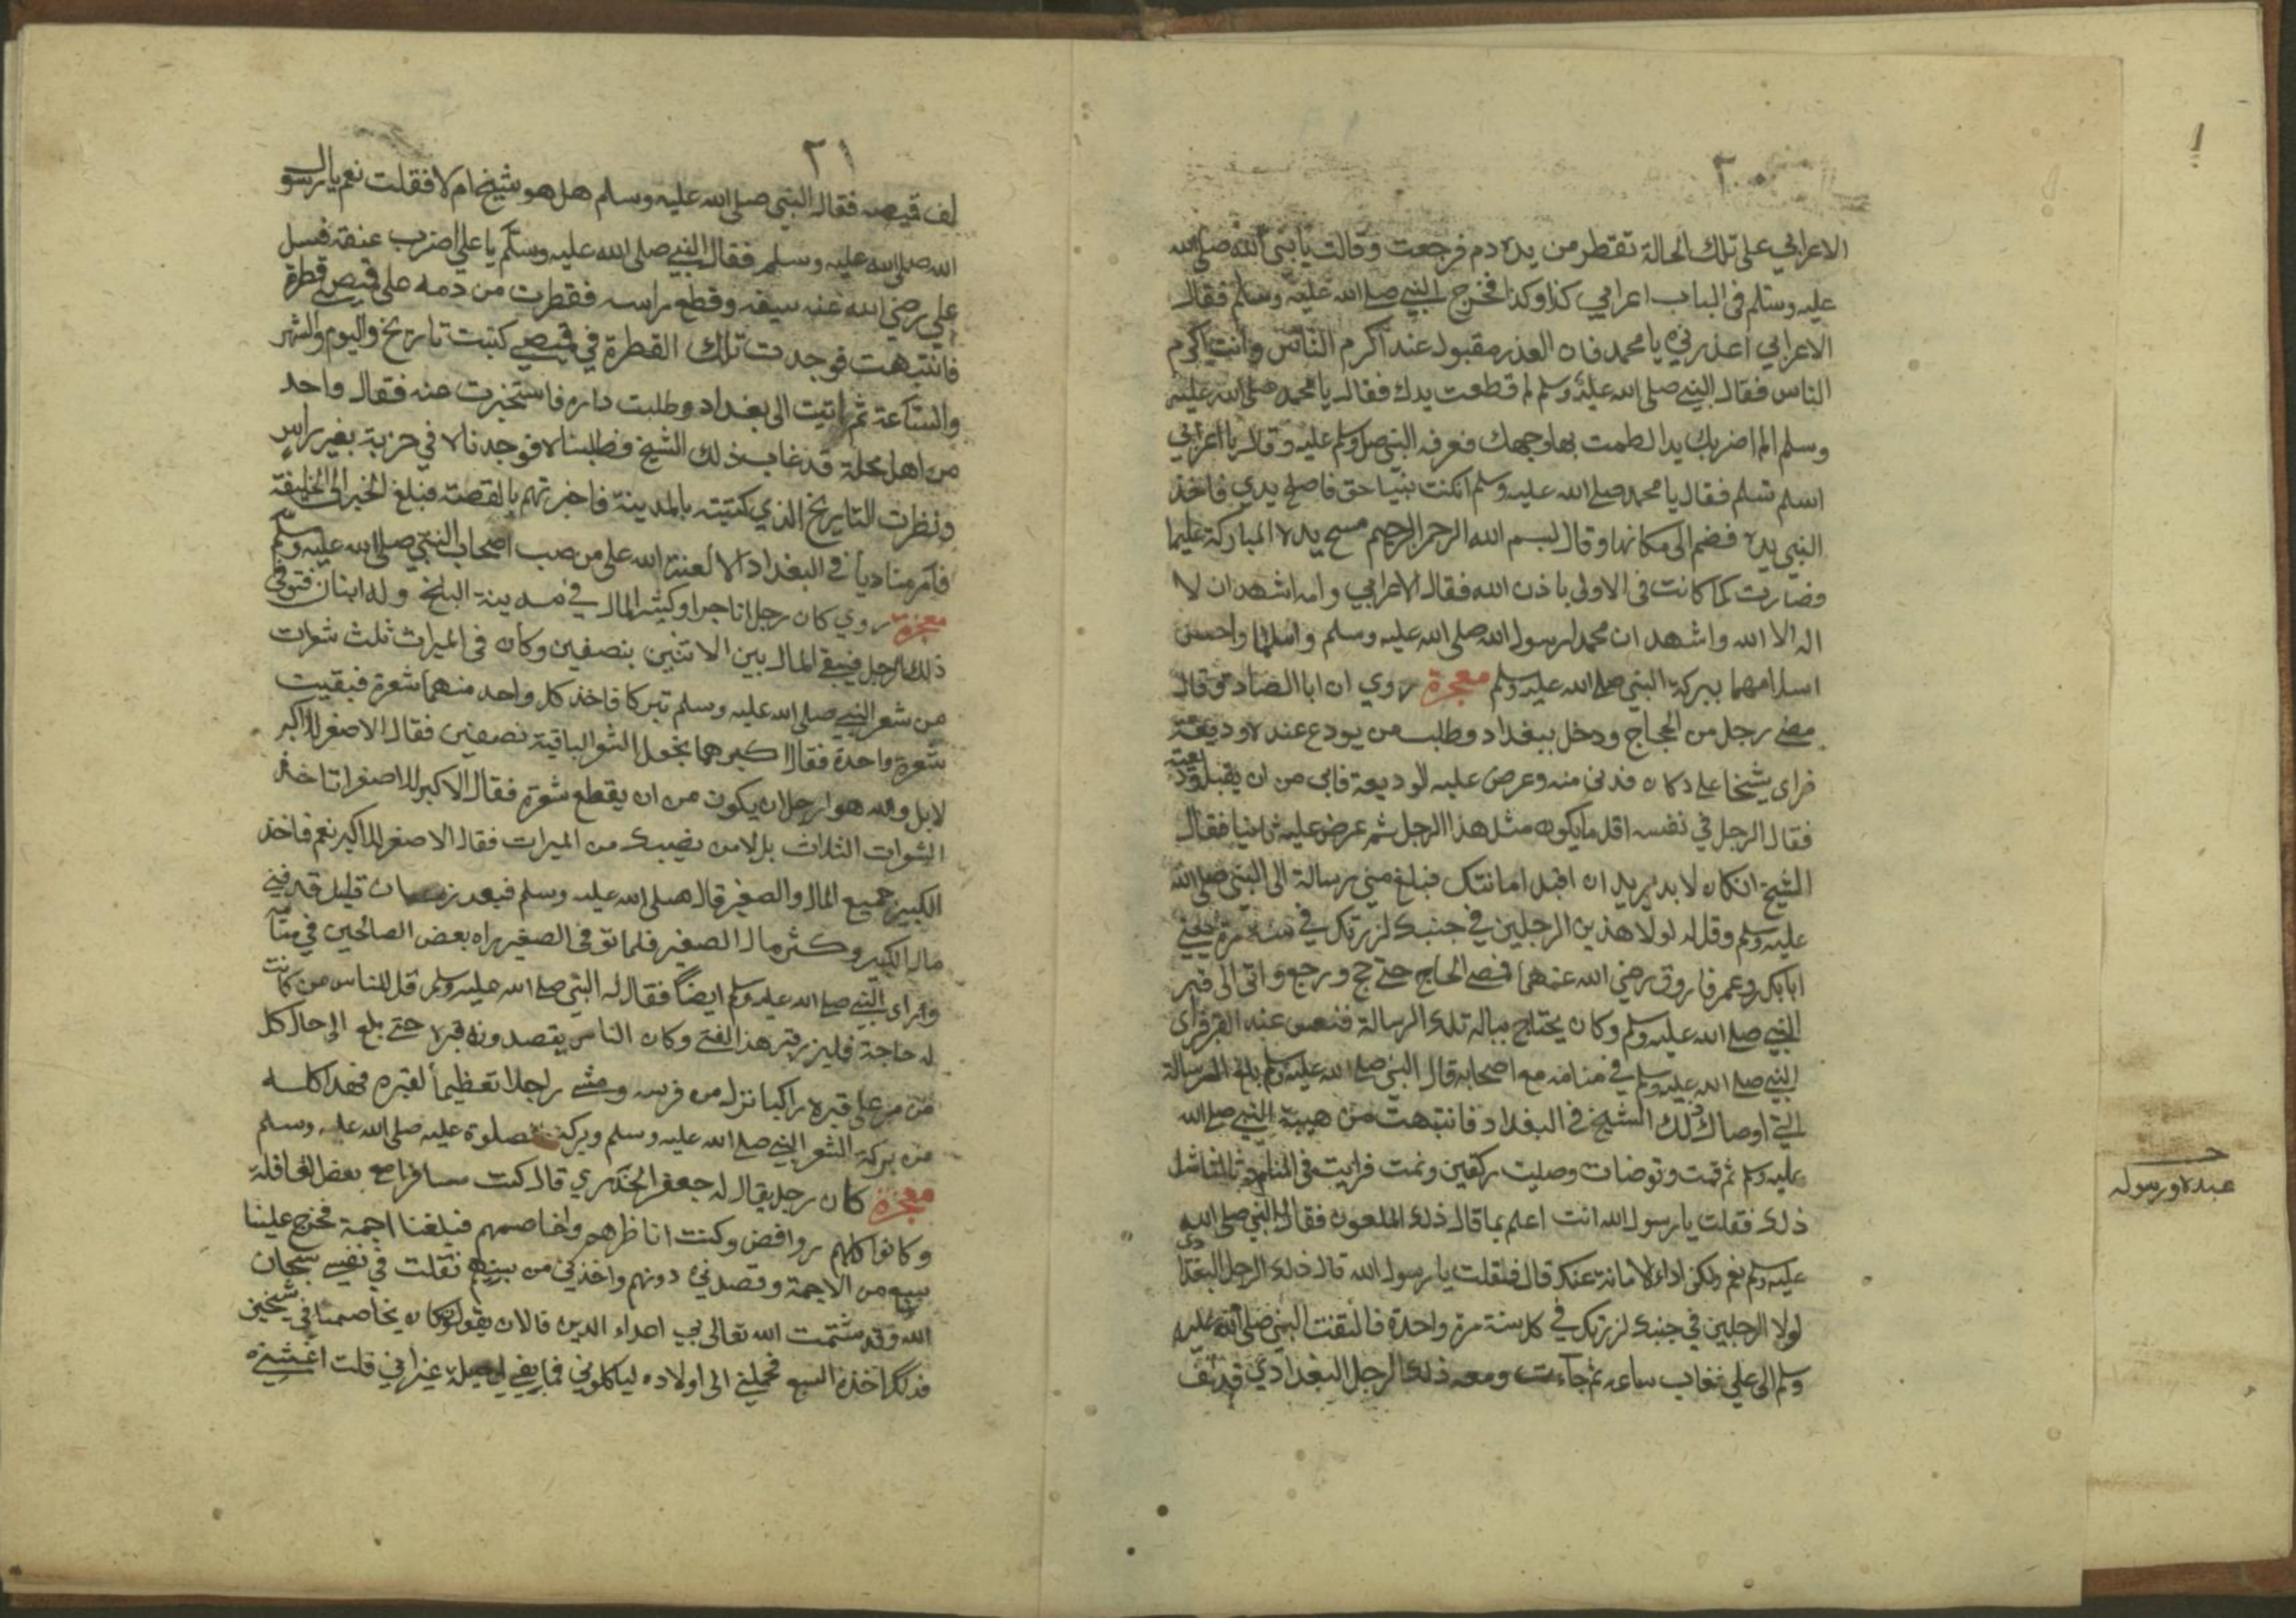 ٢٠
الاعرابي على تلك الحالة تقطر من يده دم فرجعت وقالت يا نبي الله صلى الله
عليه وسلم في الباب اعرابي كذا وكذا فخرج النبي صلى الله عليه وسلم فقال
الاعرابي اعذرني يا محمد فان العذر مقبول عند اكرم الناس وانت اكرم
الناس فقال النبي صلى الله عليه وسلم لم قطعت يدك فقال يا محمد صلى الله عليه
وسلم الم اضربك يدا لطمت بها وجهك فعرفه النبي صلى وسلم عليه وقال يا اعرابي
اسلم تسلم فقال يا محمد صلى الله عليه وسلم انكنت نبيا حق فاصلح يدي فاخذ
النبي يده فضم الى مكانها وقال بسم الله الرحمن الرحيم مسح يده المباركة عليها
فصارت كما كانت في الاولى باذن الله فقال الاعرابي وامه اشهد ان لا
اله الا الله واشهد ان محمدا رسول الله صلى الله عليه وسلم واسلما واحسن
اسلامهما ببركة النبي صلى الله عليه وسلم معجزة روي ان ابا الصادق قال
مضى رجل من الحجاج ودخل ببغداد وطلب من يودع عنده وديعة
فراى شيخا على دكان فدنى منه وعرض عليه الوديعة فابى من ان يقبل
فقال الرجل في نفسه اقل ما يكون مثل هذا الرجل ثم عرض عليه ثانيا فقال
الشيخ انكان لابد يريد ان اقبل امانتك فبلغ مني رسالة الى النبي صلى الله
عليه وسلم وقل له لولا هذين الرجلين في جنبك لزرتك في سنة مرة يعني
ابابكر وعمر فاروق رضي الله عنهما فمضى الحاج حتى حج ورجع واتى الى قبر
النبي صلى الله عليه وسلم وكان يحتاج بباله تلك الرسالة فنعس عند القبر فراى
النبي صلى الله عليه وسلم في منامه مع اصحابه قال النبي صلى الله عليه وسلم بلغ الرسالة
التي اوصاك ذلك الشيخ في البغداد فانتبهت من هيبة النبي صلى الله
عليه وسلم ثم قمت وتوضات وصليت ركعتين ونمت فرايت في المنام مثل
ذلك فقلت يا رسول الله انت اعلم بما قال ذلك الملعون فقال النبي صلى الله
عليه وسلم نعم ولكن اداء الامانة عنك قال فلقلت يا رسول الله قال ذلك الرجل البغدادي
لولا الرجلين في جنبك لزرتك في كل سنة مرة واحدة فالتفت النبي صلى الله عليه
وسلم الى علي فغاب ساعة ثم جاءت ومعه ذلك الرجل البغدادي قد لف
٢١
لف قميصه فقال النبي صلى الله عليه وسلم هل هو شيخ ام لا فقلت نعم يا رسول
الله صلى الله عليه وسلم فقال النبي صلى الله عليه وسلم يا علي اضرب عنقه فسل
علي رضي الله عنه سيفه وقطع راسه فقطرت من دمه على قميصي قطرة
فانتبهت فوجدت تلك القطرة في قميصي كتبت تاريخ واليوم والشهر
والساعة ثم اتيت الى بغداد وطلبت داره فاستخبرت عنه فقال واحد
من اهل محلة قد غاب ذلك الشيخ فطلبناه فوجدناه في خربة بغير راس
ونظرت التاريخ الذي كتبته بالمدينة فاخبرتهم بالقصة فبلغ الخبر الى الخليفة
فامر مناديا في البغداد الا لعنة الله على من صب اصحاب النبي صلى الله عليه وسلم
معجزة روي كان رجلا تاجرا وكثير المال في مدينة البلخ وله ابنان فتوفى
ذلك الرجل فبقى المال بين الاثنين بنصفين وكان في الميراث ثلث شعرات
من شعر النبي صلى الله عليه وسلم تبركا فاخذ كل واحد منهما شعرة فبقيت
شعرة واحدة فقال اكبرهما نجعل الشعر الباقية نصفين فقال الاصغر للاكبر
لا بل والله هو اجل ان يكون من ان يقطع شعره فقال الاكبر للاصغر اتاخذ
الشعرات الثلاث بدلا من نصيبك من الميراث فقال الاصغر للاكبر نعم فاخذ
الكبير جميع المال والصغير قال صلى الله عليه وسلم فبعد زمان قليل قد فني
مال الكبير وكثر مال الصغير فلما توفى الصغير راه بعض الصالحين في منامه
وراى النبي صلى الله عليه وسلم ايضاً فقال له النبي صلى الله عليه وسلم قل للناس من كانت
له حاجة فليزر قبر هذا الفتى وكان الناس يقصدون قبره حتى بلغ الى حال كل
من مر على قبره راكبا نزل من فرسه ومشى راجلا تعظيماً لقبره فهذا كله
من بركة الشعر النبي صلى الله عليه وسلم وبركة صلوة عليه صلى الله عليه وسلم
معجزة كان رجل يقال له جعفر الخدري قال كنت مسافرا مع بعض القافلة
وكانوا كلهم روافض وكنت اناظرهم واخاصمهم فبلغنا اجمة فخرج علينا
سبع من الاجمة وقصدني دونهم واخذني من بينهم فقلت في نفسي سبحان
الله وقد شتمت الله تعالى بي اعداء الدين فالان يقولون كان يخاصمنا في شيخين
فذلك اخذه السبع فحملني الى اولاده لياكلوني فما بقي لي حيلة غير اني قلت اغثني
عبده ورسوله